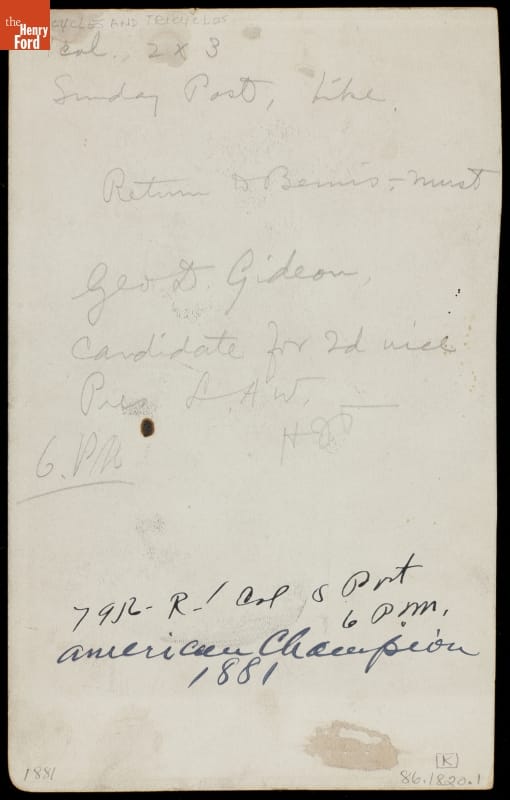 the
Henry
Ford
CYCLES AND TRICYCLES
col., 2 x 3
Sunday Post, Like.
Return to Bemis - must
Geo D. Gideon,
Candidate for 2d vice
Pres L.A.W.
6. PM
R-1 Col S Post
6 P.M.
american Champion
1881
1881
K
86.1820.1